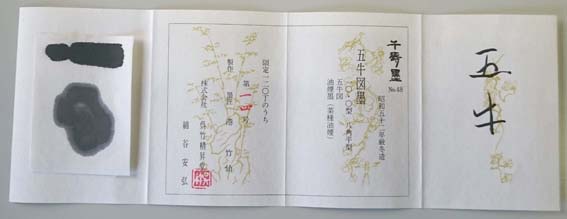 五牛
千寿墨
No.48
昭和五十二年厳冬造
五牛図墨
二〇・〇型 八角平型
五牛図
油煙墨(菜種油煙)
限定一二〇丁のうち
第一一四号
製作 墨匠 港 竹仙
株式会社 呉竹精昇堂
綿谷安弘